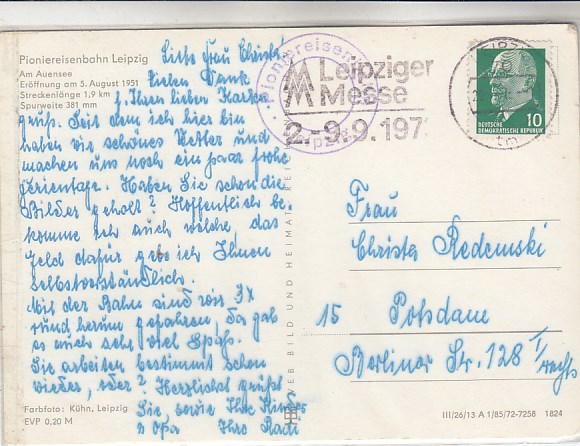 Pioniereisenbahn Leipzig
Am Auensee
Eröffnung am 5. August 1951
Streckenlänge 1,9 km
Spurweite 381 mm
Liebe Frau Christa!
Vielen Dank
f. Ihren lieben Karten
gruß. Seit dem ich hier bin
haben wir schönes Wetter und
machen uns noch ein paar frohe
Ferientage. Haben Sie schon die
Bilder geholt? Hoffentlich be-
komme ich auch welche, das
Geld dafür gebe ich Ihnen
selbstverständlich.
Mit der Bahn sind wir 3X
rund herum gefahren, da gab
es auch sehr viel Spaß.
Sie arbeiten bestimmt schon
wieder, oder? Herzlichst grüßt
Sie, sowie Ihre Kinder
u Opa Ihre
Farbfoto: Kühn, Leipzig
EVP 0,20 M
VEB BILD UND HEIMAT REI
Pioniereisen
Leipziger
Messe
2.-9.9.197
LEIPZIG
tm
DEUTSCHE
DEMOKRATISCHE REPUBLIK
10
Frau
Christa Redemski
15 Potsdam
Berliner Str. 128 I/
rechts
III/26/13 A 1/85/72-7258 1824